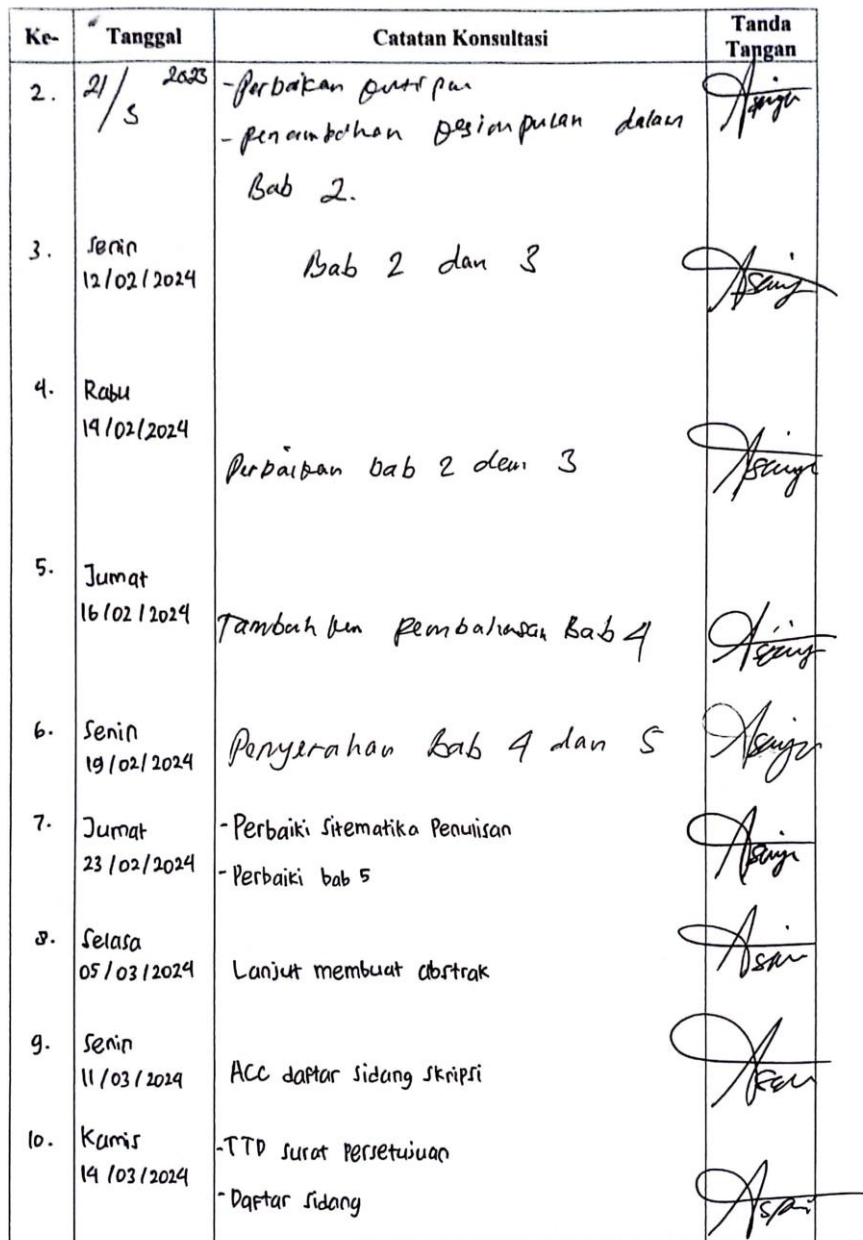 Ke- Tanggal Catatan Konsultasi Tanda Tangan
2. 21/5 2023 - Perbaikan kutipan
- penambahan kesimpulan dalam
Bab 2.
3. Senin Bab 2 dan 3
12/02/2024
4. Rabu
14/02/2024
Perbaikan bab 2 dan 3
5. Jumat
16/02/2024 Tambahkan pembahasan Bab 4
6. Senin Penyerahan Bab 4 dan 5
19/02/2024
7. Jumat - Perbaiki Sitematika Penulisan
23/02/2024 - Perbaiki bab 5
8. Selasa
05/03/2024 Lanjut membuat abstrak
9. Senin
11/03/2024 ACC daftar Sidang Skripsi
10. Kamis - TTD Surat Persetujuan
14/03/2024 - Daftar Sidang